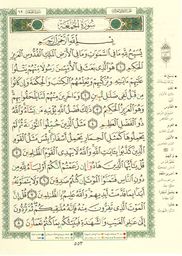 سُورَةُ الجُمُعَةِ
بِسْمِ اللَّهِ الرَّحْمَٰنِ الرَّحِيمِ
يُسَبِّحُ لِلَّهِ مَا فِي السَّمَٰوَٰتِ وَمَا فِي الْأَرْضِ الْمَلِكِ الْقُدُّوسِ الْعَزِيزِ
الْحَكِيمِ ١ هُوَ الَّذِي بَعَثَ فِي الْأُمِّيِّينَ رَسُولًا مِنْهُمْ يَتْلُوا
عَلَيْهِمْ ءَايَٰتِهِ وَيُزَكِّيهِمْ وَيُعَلِّمُهُمُ الْكِتَٰبَ وَالْحِكْمَةَ وَإِنْ كَانُوا
مِنْ قَبْلُ لَفِي ضَلَٰلٍ مُبِينٍ ٢ وَءَاخَرِينَ مِنْهُمْ لَمَّا يَلْحَقُوا بِهِمْ
وَهُوَ الْعَزِيزُ الْحَكِيمُ ٣ ذَٰلِكَ فَضْلُ اللَّهِ يُؤْتِيهِ مَنْ يَشَاءُ وَاللَّهُ
ذُو الْفَضْلِ الْعَظِيمِ ٤ مَثَلُ الَّذِينَ حُمِّلُوا التَّوْرَىٰةَ ثُمَّ لَمْ
يَحْمِلُوهَا كَمَثَلِ الْحِمَارِ يَحْمِلُ أَسْفَارًا بِئْسَ مَثَلُ الْقَوْمِ
الَّذِينَ كَذَّبُوا بِـَٔايَٰتِ اللَّهِ وَاللَّهُ لَا يَهْدِي الْقَوْمَ الظَّٰلِمِينَ ٥
قُلْ يَٰأَيُّهَا الَّذِينَ هَادُوا إِنْ زَعَمْتُمْ أَنَّكُمْ أَوْلِيَاءُ لِلَّهِ مِنْ
دُونِ النَّاسِ فَتَمَنَّوُا الْمَوْتَ إِنْ كُنْتُمْ صَٰدِقِينَ ٦ وَلَا يَتَمَنَّوْنَهُ
أَبَدًا بِمَا قَدَّمَتْ أَيْدِيهِمْ وَاللَّهُ عَلِيمٌ بِالظَّٰلِمِينَ ٧ قُلْ إِنَّ
الْمَوْتَ الَّذِي تَفِرُّونَ مِنْهُ فَإِنَّهُ مُلَٰقِيكُمْ ثُمَّ تُرَدُّونَ
إِلَىٰ عَٰلِمِ الْغَيْبِ وَالشَّهَٰدَةِ فَيُنَبِّئُكُمْ بِمَا كُنْتُمْ تَعْمَلُونَ ٨
٥٥٣